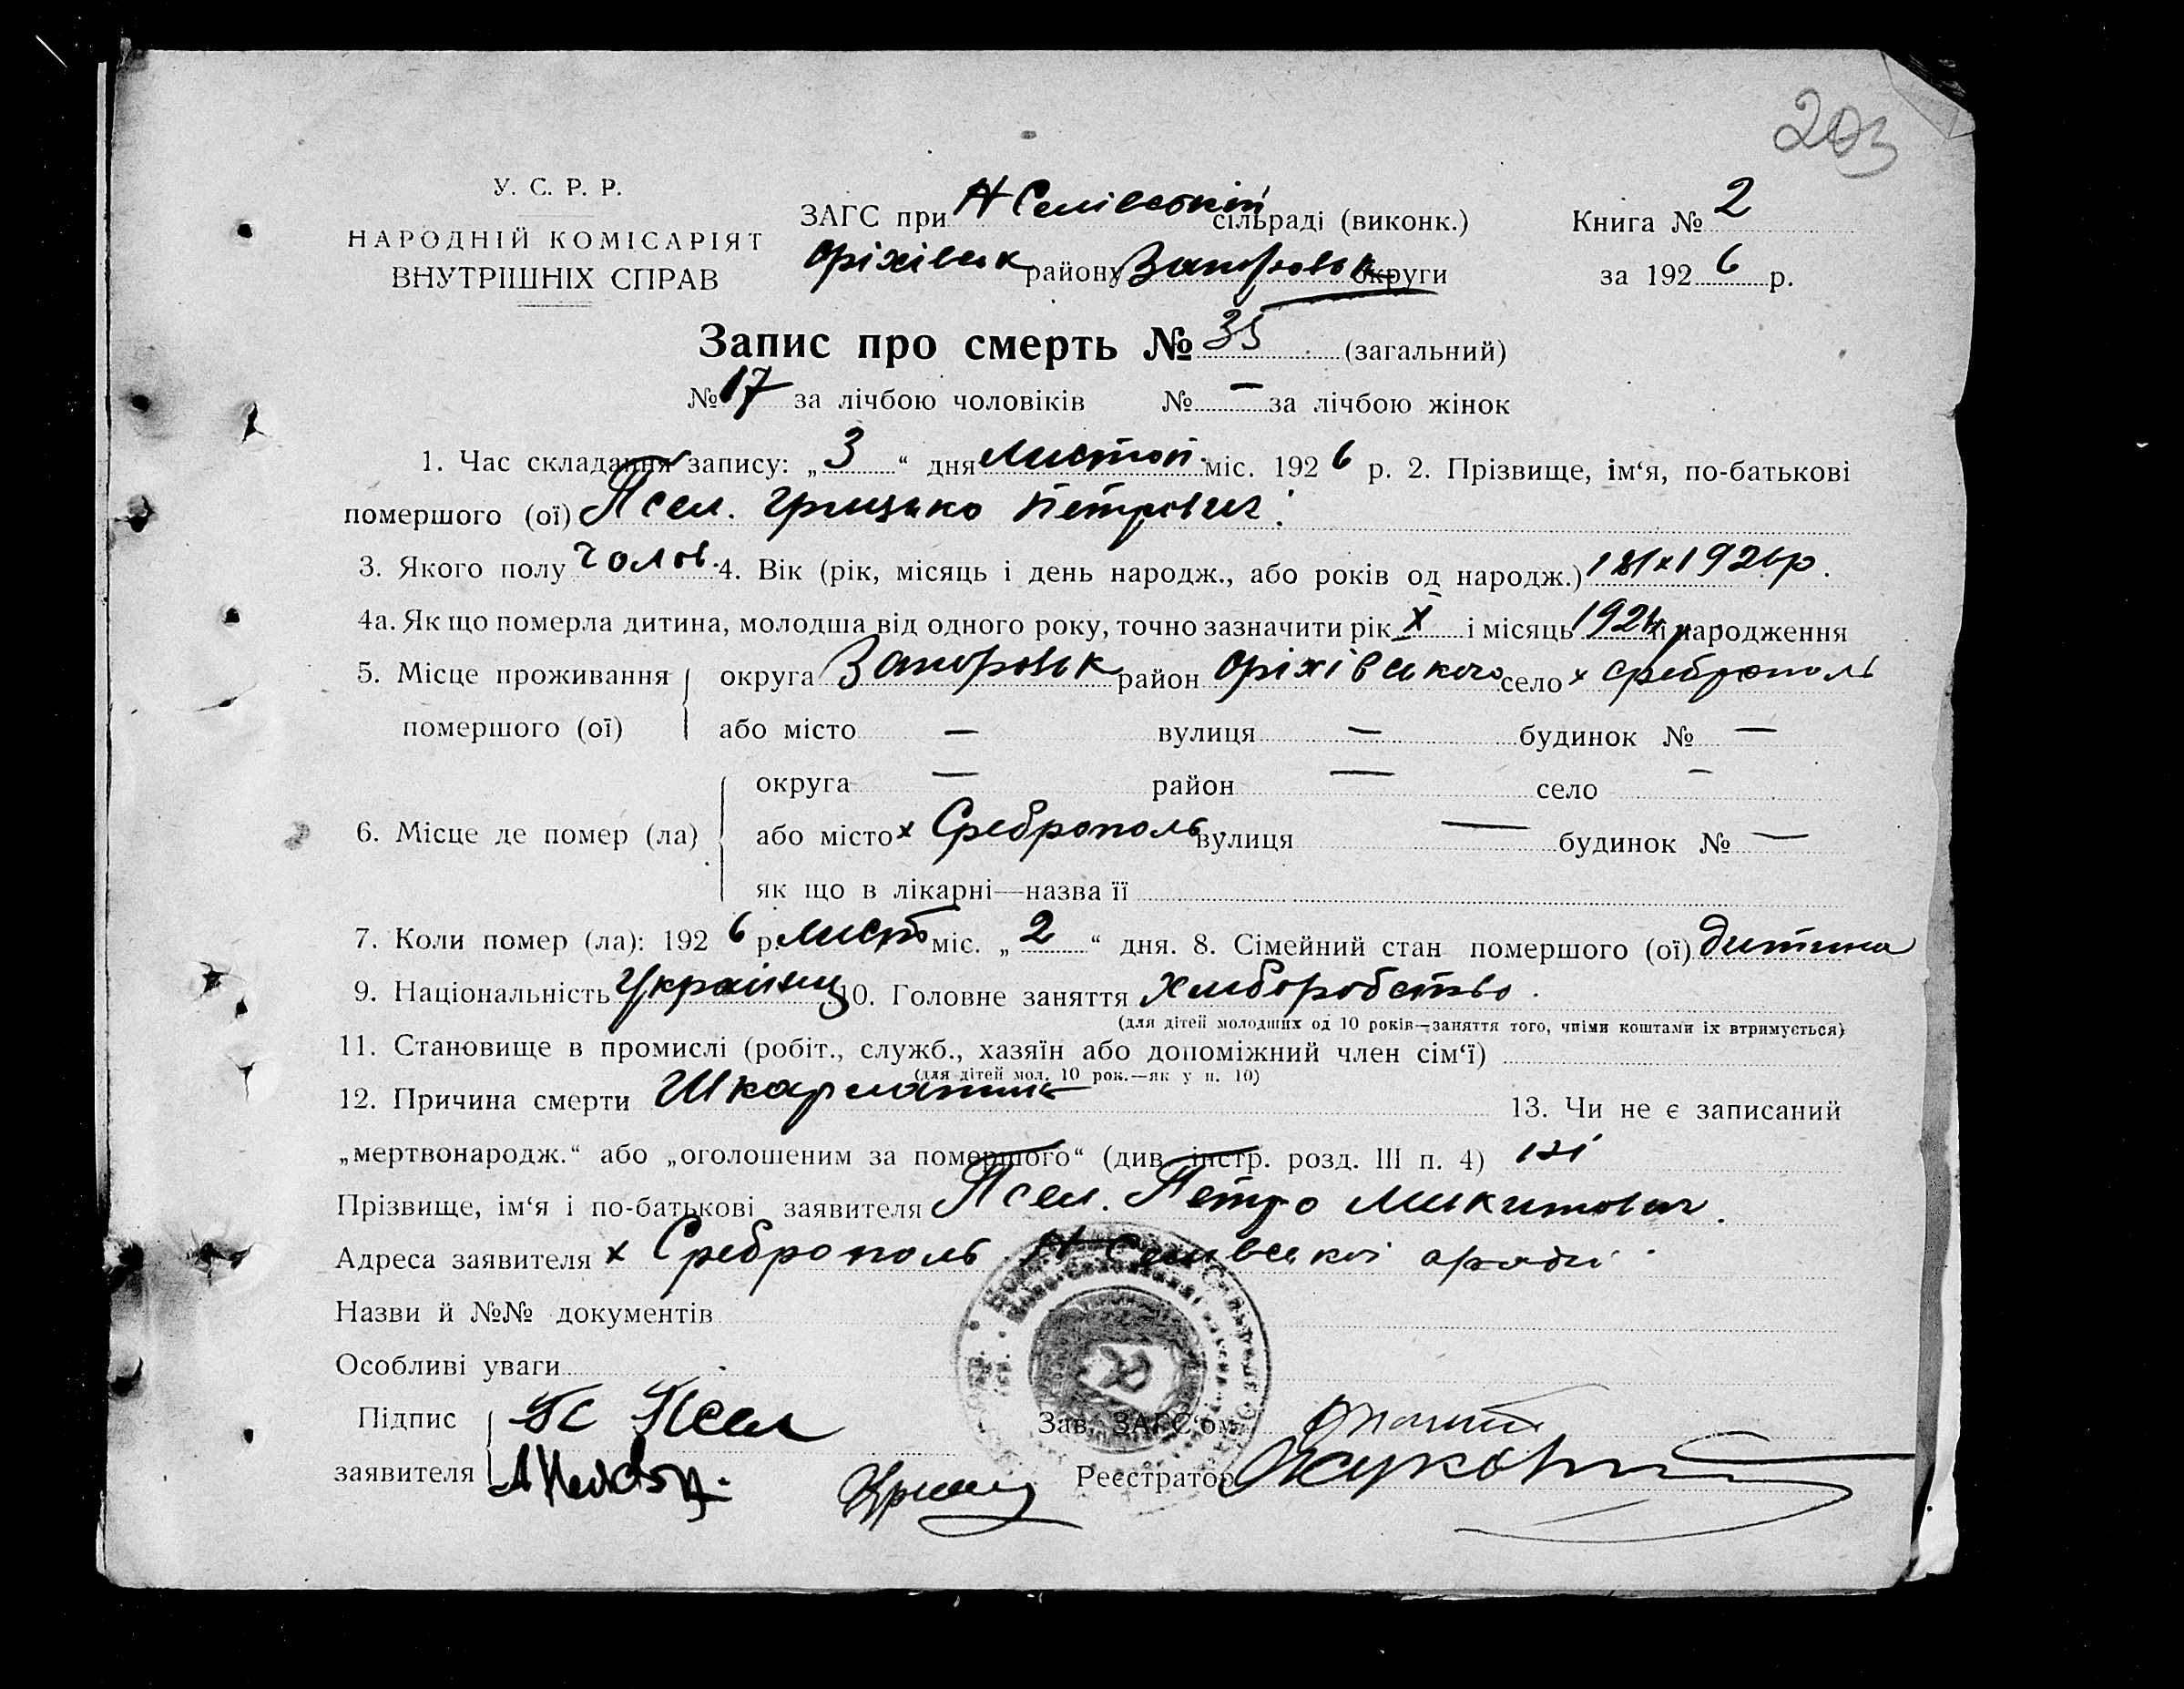 203
У. С. Р. Р.
НАРОДНІЙ КОМІСАРІЯТ
ВНУТРІШНІХ СПРАВ
ЗАГС при Н Селівській сільраді (виконк.)
Оріхівськ району Запоровськ округи
Книга № 2
за 192 6 р.
Запис про смерть № 35 (загальний)
№ 17 за лічбою чоловіків № — за лічбою жінок
1. Час складання запису: „ 3 “ дня листоп. міс. 192 6 р. 2. Прізвище, ім‘я, по-батькові
помершого (ої) Псел. Грицько Петрович.
3. Якого полу Чолов. 4. Вік (рік, місяць і день народж., або років од народж.) 1926р.
4а. Як що померла дитина, молодша від одного року, точно зазначити рік X і місяць 192 її народження
5. Місце проживання округа Запоровськ район Оріхівського село х Среброполь
помершого (ої) або місто — вулиця — будинок № —
округа — район — село —
6. Місце де помер (ла) або місто х Среброполь вулиця — будинок № —
як що в лікарні—назва її
7. Коли помер (ла): 192 6 р. листо міс. „ 2 “ дня. 8. Сімейний стан помершого (ої) дитина
9. Національність Українец 10. Головне заняття Хлиборобство.
(для дітей молодших од 10 років—заняття того, чиїми коштами їх втримується)
11. Становище в промислі (робіт., служб., хазяїн або допоміжний член сім‘ї)
(для дітей мол. 10 рок.—як у п. 10)
12. Причина смерти Шкарлатина 13. Чи не є записаний
„мертвонародж.“ або „оголошеним за помершого“ (див. інстр. розд. III п. 4) ні
Прізвище, ім‘я і по-батькові заявителя Псел. Петро Микитович.
Адреса заявителя х Среброполь Н Селивської
Назви й №№ документів
Особливі уваги
Підпис Псел Зав. ЗАГС‘ом
заявителя Реєстратор